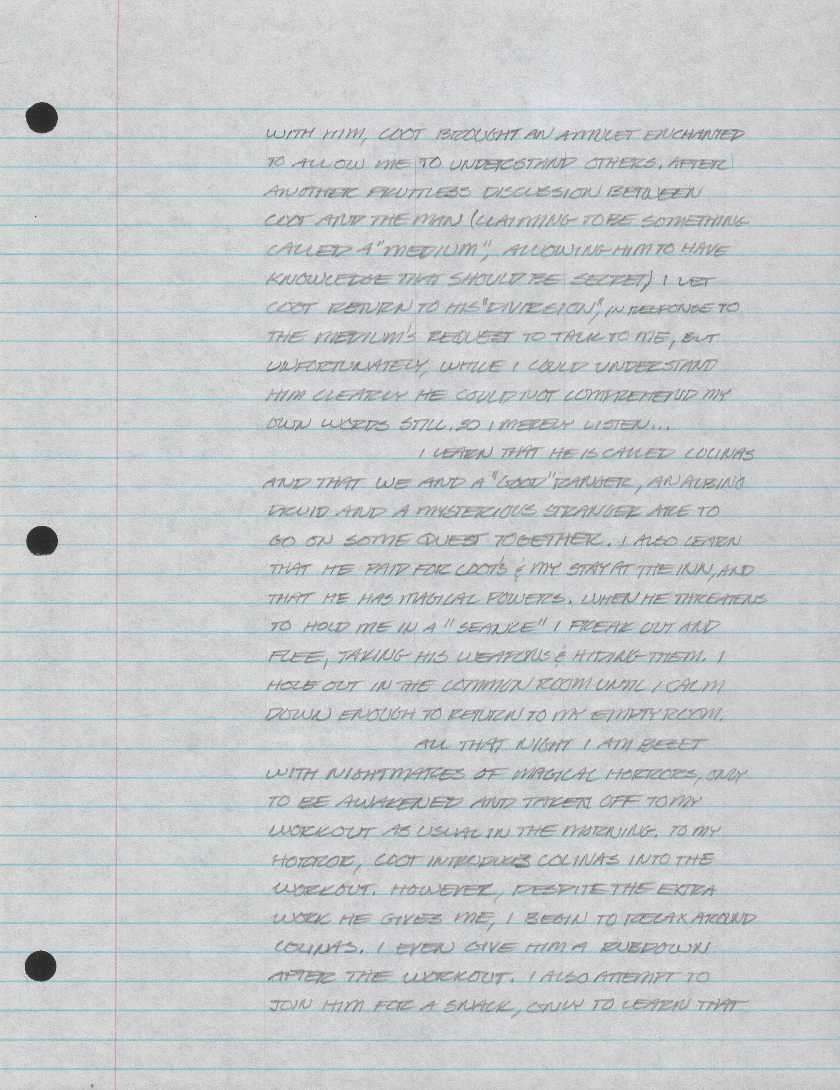 WITH HIM, COOT BROUGHT AN AMULET ENCHANTED
TO ALLOW ME TO UNDERSTAND OTHERS. AFTER
ANOTHER FRUITLESS DISCUSSION BETWEEN
COOT AND THE MAN (CLAIMING TO BE SOMETHING
CALLED A "MEDIUM", ALLOWING HIM TO HAVE
KNOWLEDGE THAT SHOULD BE SECRET) I LET
COOT RETURN TO HIS "DIVERSION", IN RESPONSE TO
THE MEDIUM'S REQUEST TO TALK TO ME, BUT
UNFORTUNATELY, WHILE I COULD UNDERSTAND
HIM CLEARLY HE COULD NOT COMPREHEND MY
OWN WORDS STILL. SO I MERELY LISTEN...
I LEARN THAT HE IS CALLED COLINAS
AND THAT WE AND A "GOOD" RANGER, AN ALBINO
DRUID AND A MYSTERIOUS STRANGER ARE TO
GO ON SOME QUEST TOGETHER. I ALSO LEARN
THAT HE PAID FOR COOT'S & MY STAY AT THE INN, AND
THAT HE HAS MAGICAL POWERS. WHEN HE THREATENS
TO HOLD ME IN A "SEANCE" I FREAK OUT AND
FLEE, TAKING HIS WEAPONS & HIDING THEM. I
HOLE OUT IN THE COMMON ROOM UNTIL I CALM
DOWN ENOUGH TO RETURN TO MY EMPTY ROOM.
ALL THAT NIGHT I AM BESET
WITH NIGHTMARES OF MAGICAL HORRORS, ONLY
TO BE AWAKENED AND TAKEN OFF TO MY
WORKOUT AS USUAL IN THE MORNING. TO MY
HORROR, COOT INTRODUCES COLINAS INTO THE
WORKOUT. HOWEVER, DESPITE THE EXTRA
WORK HE GIVES ME, I BEGIN TO RELAX AROUND
COLINAS. I EVEN GIVE HIM A RUBDOWN
AFTER THE WORKOUT. I ALSO ATTEMPT TO
JOIN HIM FOR A SNACK, ONLY TO LEARN THAT